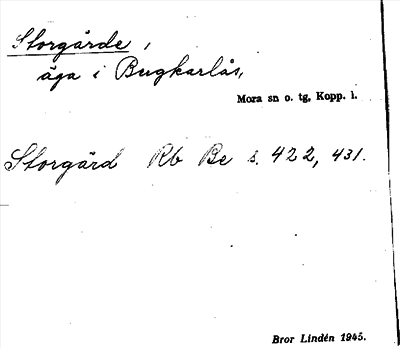 Storgårde,
äga i Bugkarlås,
Mora sn o. tg, Kopp. l.
Storgård Rb Be s. 422, 431.
Bror Lindén 1945.